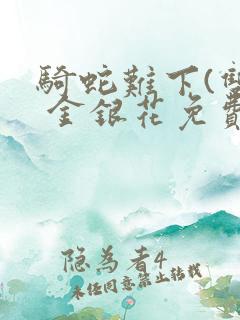 騎蛇難下(雙
金銀花免費
隐为者4
未经同意禁止转载